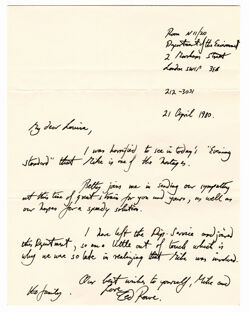 Room N11/20
Department of the Environment
2 Marsham Street
London SW1P 3EB
212-3021
21 April 1980.
My dear Louise,
I was horrified to see in today's "Evening
Standard" that Mike is one of the hostages.
Betty joins me in sending our sympathy
at this time of great strain for you and yours, as well as
our hopes for a speedy solution.
I have left the Dip. Service and joined
this Department, so am a little out of touch which is
why we are so late in realising that Mike was involved.
Our best wishes to yourself, Mike and
the family.
Love,